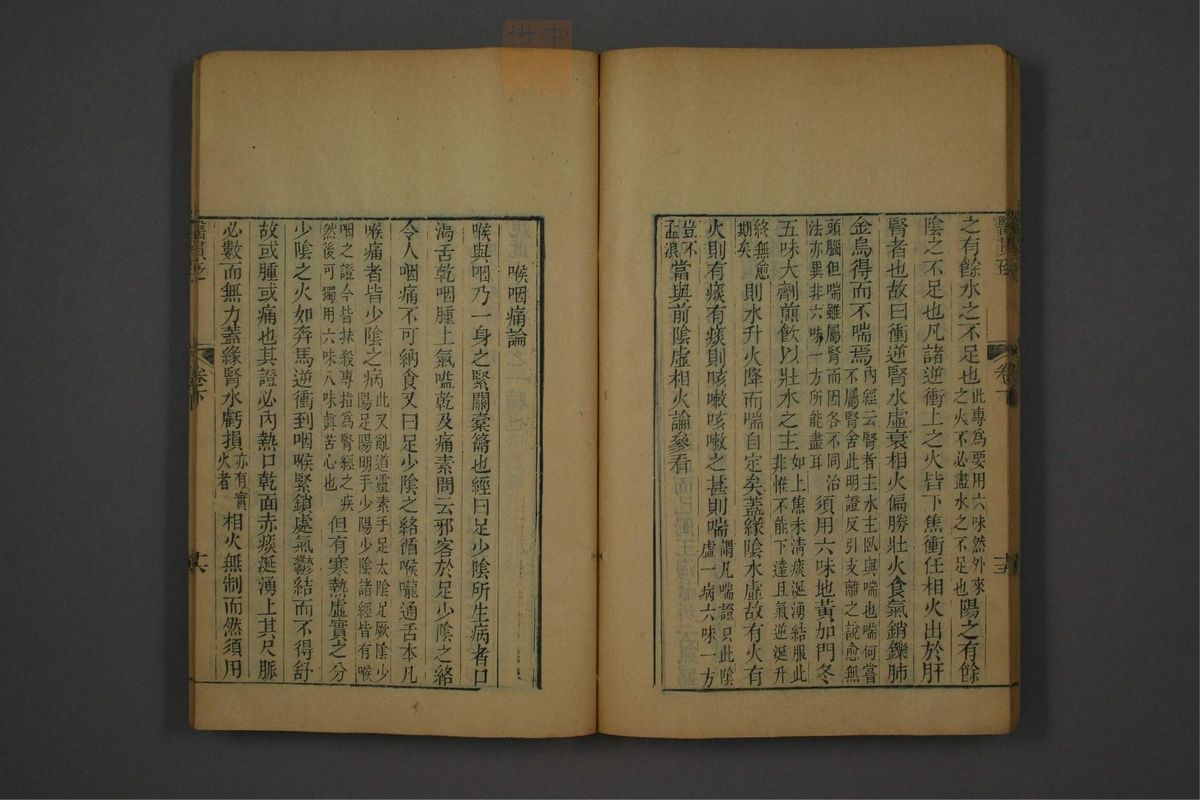 醫貫砭
卷下
之有餘水之不足也此專爲要用六味然外來之火不必盡水之不足也陽之有餘
陰之不足也凡諸逆衝上之火皆下焦衝任相火出於肝
腎者也故曰衝逆腎水虛衰相火偏勝壯火食氣銷鑠肺
金烏得而不喘焉內經云腎者主水主臥與喘也喘何嘗不屬腎舍此明證反引支離之說愈無
頭腦但喘雖屬腎而因各不同治法亦異非六味一方所能盡耳須用六味地黃加門冬
五味大劑煎飲以壯水之主如上焦未清痰涎湧結服此非惟不能下達且氣逆涎升
終無愈期矣則水升火降而喘自定矣蓋緣陰水虛故有火有
火則有痰有痰則咳嗽咳嗽之甚則喘謂凡喘證只此陰虛一病六味一方
豈不孟浪當與前陰虛相火論參看
喉咽痛論
喉與咽乃一身之緊關橐籥也經曰足少陰所生病者口
渴舌乾咽腫上氣嗌乾及痛素問云邪客於足少陰之絡
令人咽痛不可納食又曰足少陰之絡循喉嚨通舌本凡
喉痛者皆少陰之病此又亂道靈素手足太陰足厥陰少陽足陽明手少陽少陰諸經皆有喉
咽之證今皆抹殺專指爲腎經之疾然後可獨用六味八味眞苦心也但有寒熱虛實之分
少陰之火如奔馬逆衝到咽喉緊鎖處氣鬱結而不得舒
故或腫或痛也其證必內熱口乾面赤痰涎湧上其尺脈
必數而無力蓋緣腎水虧損亦有實火者相火無制而然須用
醫貫砭
卷下